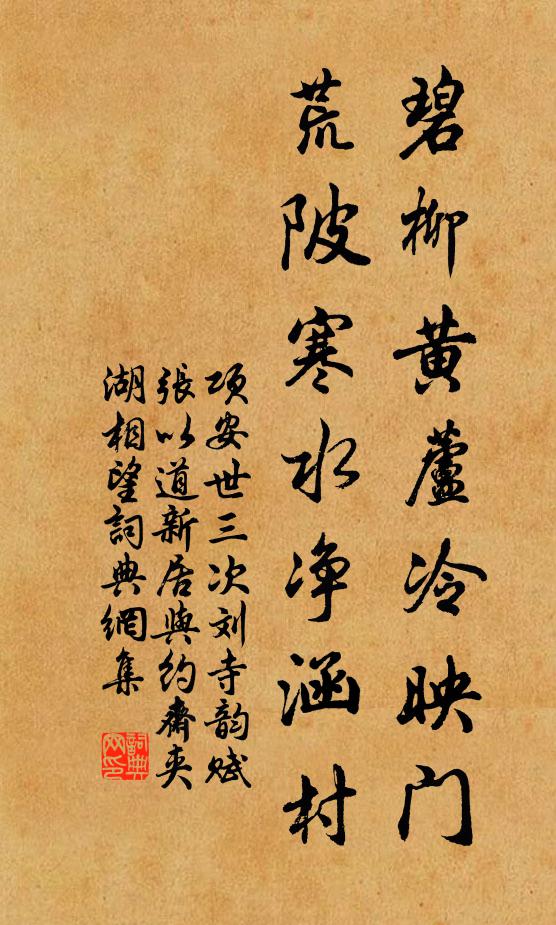 碧柳黄蘆冷映门
荒陂寒水净涵村
项安世三次刘寺韵赋
張以道新居與约齋夹
湖相望詞典網集
詞典
网印